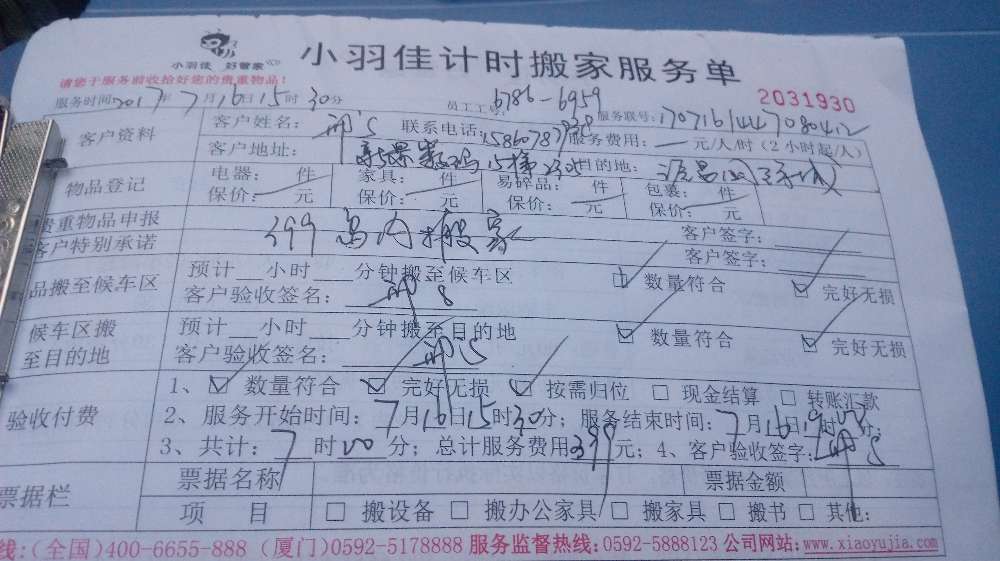 小羽佳 好管家
小羽佳计时搬家服务单
请您于服务前收拾好您的贵重物品！
2031930
服务时间：2017年7月16日15时30分 员工工号：6786-6959 服务联号：1707161447080412
客户资料 客户姓名： 联系电话：服务费用： 元/人/时（2小时起/人）
客户地址： 15栋 目的地：
物品登记 电器： 件 家具： 件 易碎品： 件 包裹： 件
保价： 元 保价： 元 保价： 元 保价： 元
贵重物品申报 399岛内搬家 客户签字：
客户特别承诺 客户签字：
品搬至候车区 预计 小时 分钟搬至候车区 数量符合 完好无损
客户验收签名：
候车区搬至目的地 预计 小时 分钟搬至目的地 数量符合 完好无损
客户验收签名：
验收付费 1、 数量符合 完好无损 按需归位 现金结算 转账汇款
2、服务开始时间：7月16日15时30分；服务结束时间：7月16日19时分；
3、共计：7时00分；总计服务费用399元；4、客户验收签字：
票据栏 票据名称 票据金额
项 目 搬设备 搬办公家具 搬家具 搬书 其他：
线：（全国）400-6655-888（厦门）0592-5178888 服务监督热线：0592-5888123 公司网站：www.xiaoyujia.com